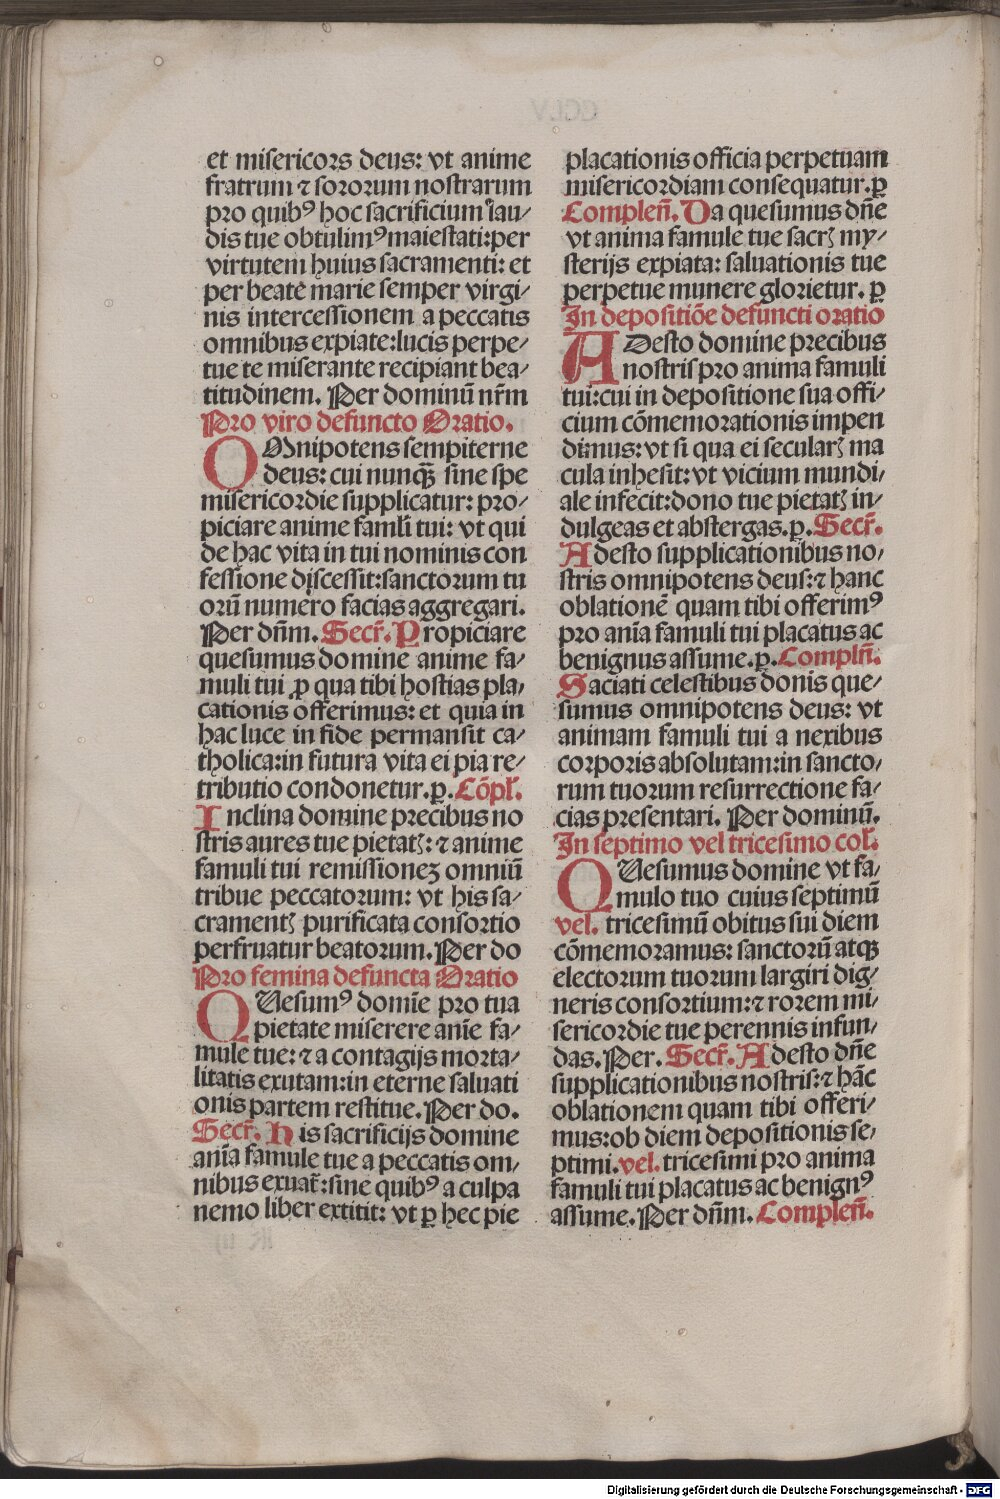 et misericors deus: vt anime
fratrum ⁊ sororum nostrarum
pro quibꝰ hoc sacrificium lau⸗
dis tue obtulimꝰ maiestati: per
virtutem huius sacramenti: et
per beate marie semper virgi⸗
nis intercessionem a peccatis
omnibus expiate: lucis perpe⸗
tue te miserante recipiant bea⸗
titudinem. Per dominū nr̄m
Pro viro defuncto Oratio.
OMnipotens sempiterne
deus: cui nunqꝫ sine spe
misericordie supplicatur: pro⸗
piciare anime famlī tui: vt qui
de hac vita in tui nominis con
fessione discessit: sanctorum tu
orū numero facias aggregari.
Per dn̄m. Secr̄. Propiciare
quesumus domine anime fa⸗
muli tui ꝓ qua tibi hostias pla⸗
cationis offerimus: et quia in
hac luce in fide permansit ca⸗
tholica: in futura vita ei pia re⸗
tributio condonetur. ꝑ. Cōpl̄.
Inclina domine precibus no
stris aures tue pietatꝭ: ⁊ anime
famuli tui remissioneꝫ omniū
tribue peccatorum: vt his sa⸗
cramentꝭ purificata consortio
perfruatur beatorum. Per do
Pro femina defuncta Oratio
QUesumꝰ domīe pro tua
pietate miserere anīe fa⸗
mule tue: ⁊ a contagijs morta⸗
litatis exutam: in eterne saluati
onis partem restitue. Per do.
Secr̄. His sacrificijs domine
anīa famule tue a peccatis om⸗
nibus exuat̄: sine quibꝰ a culpa
nemo liber extitit: vt ꝑ hec pie
placationis officia perpetuam
misericordiam consequatur. ꝑ
Complen̄. Da quesumus dn̄e
vt anima famule tue sacrꝭ my⸗
sterijs expiata: saluationis tue
perpetue munere glorietur. ꝑ
In depositiōe defuncti oratio
ADesto domine precibus
nostris pro anima famuli
tui: cui in depositione sua offi⸗
cium cōmemorationis impen
dimus: vt si qua ei secularꝭ ma
cula inhesit: vt vicium mundi⸗
ale infecit: dono tue pietatꝭ in⸗
dulgeas et abstergas. ꝑ. Secr̄.
Adesto supplicationibus no⸗
stris omnipotens deus: ⁊ hanc
oblationē quam tibi offerimꝰ
pro anīa famuli tui placatus ac
benignus assume. ꝑ. Compln̄.
Saciati celestibus donis que⸗
sumus omnipotens deus: vt
animam famuli tui a nexibus
corporis absolutam: in sancto⸗
rum tuorum resurrectione fa⸗
cias presentari. Per dominū.
In septimo vel tricesimo col̄.
QUesumus domine vt fa⸗
mulo tuo cuius septimū
vel. tricesimū obitus sui diem
cōmemoramus: sanctorū atqꝫ
electorum tuorum largiri dig⸗
neris consortium: ⁊ rorem mi⸗
sericordie tue perennis infun⸗
das. Per. Secr̄. Adesto dn̄e
supplicationibus nostris: ⁊ hāc
oblationem quam tibi offeri⸗
mus: ob diem depositionis se⸗
ptimi. vel. tricesimi pro anima
famuli tui placatus ac benignꝰ
assume. Per dn̄m. Complen̄.
Digitalisierung gefördert durch die Deutsche Forschungsgemeinschaft - DFG